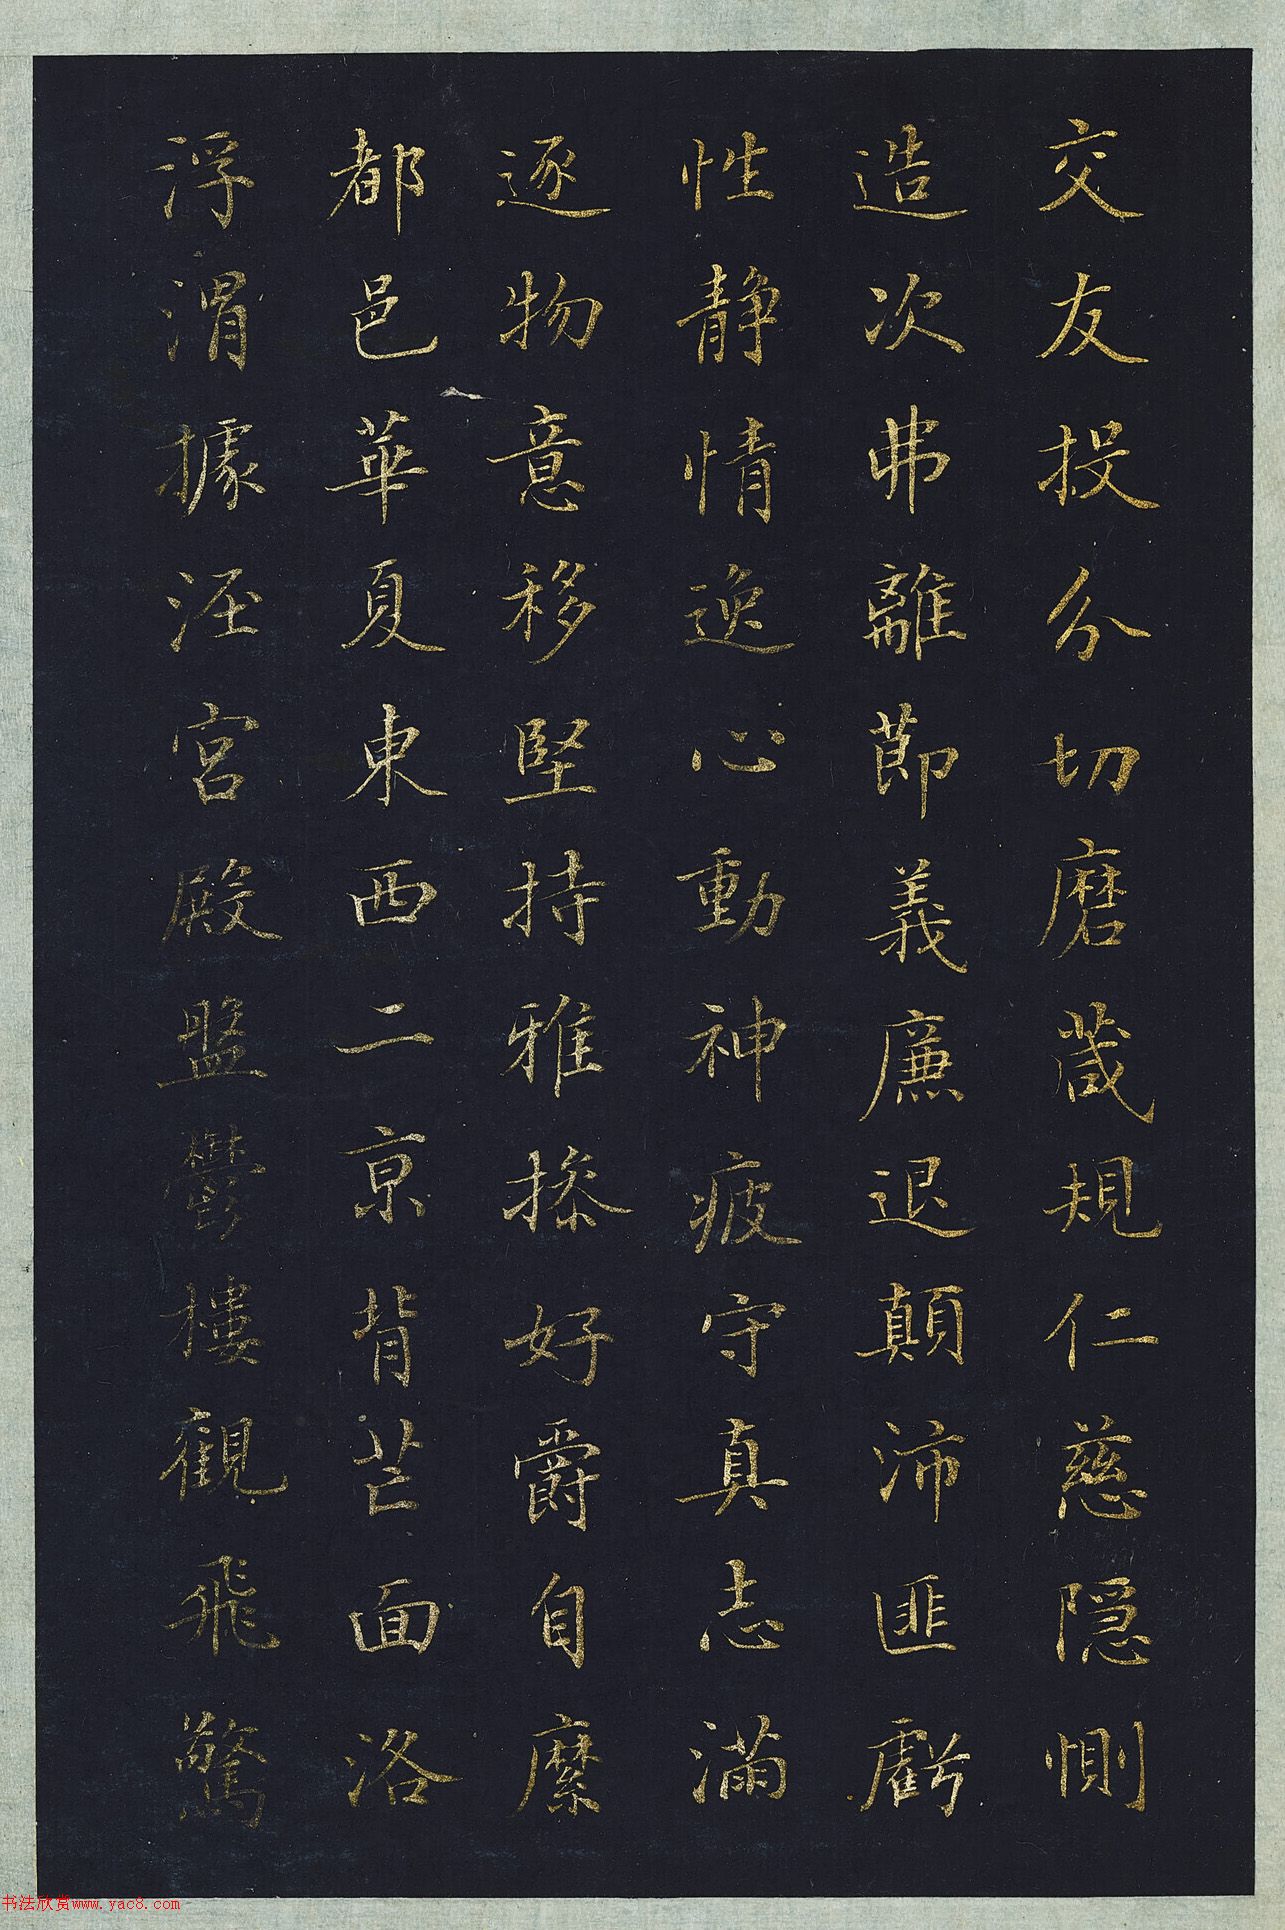 交友投分切磨葴規仁慈隱惻
造次弗離節義廉退顛沛匪虧
性靜情逸心動神疲守真志滿
逐物意移堅持雅操好爵自縻
都邑華夏東西二京背芒面洛
浮渭據涇宮殿盤鬱樓觀飛驚
书法欣赏www.yac8.com